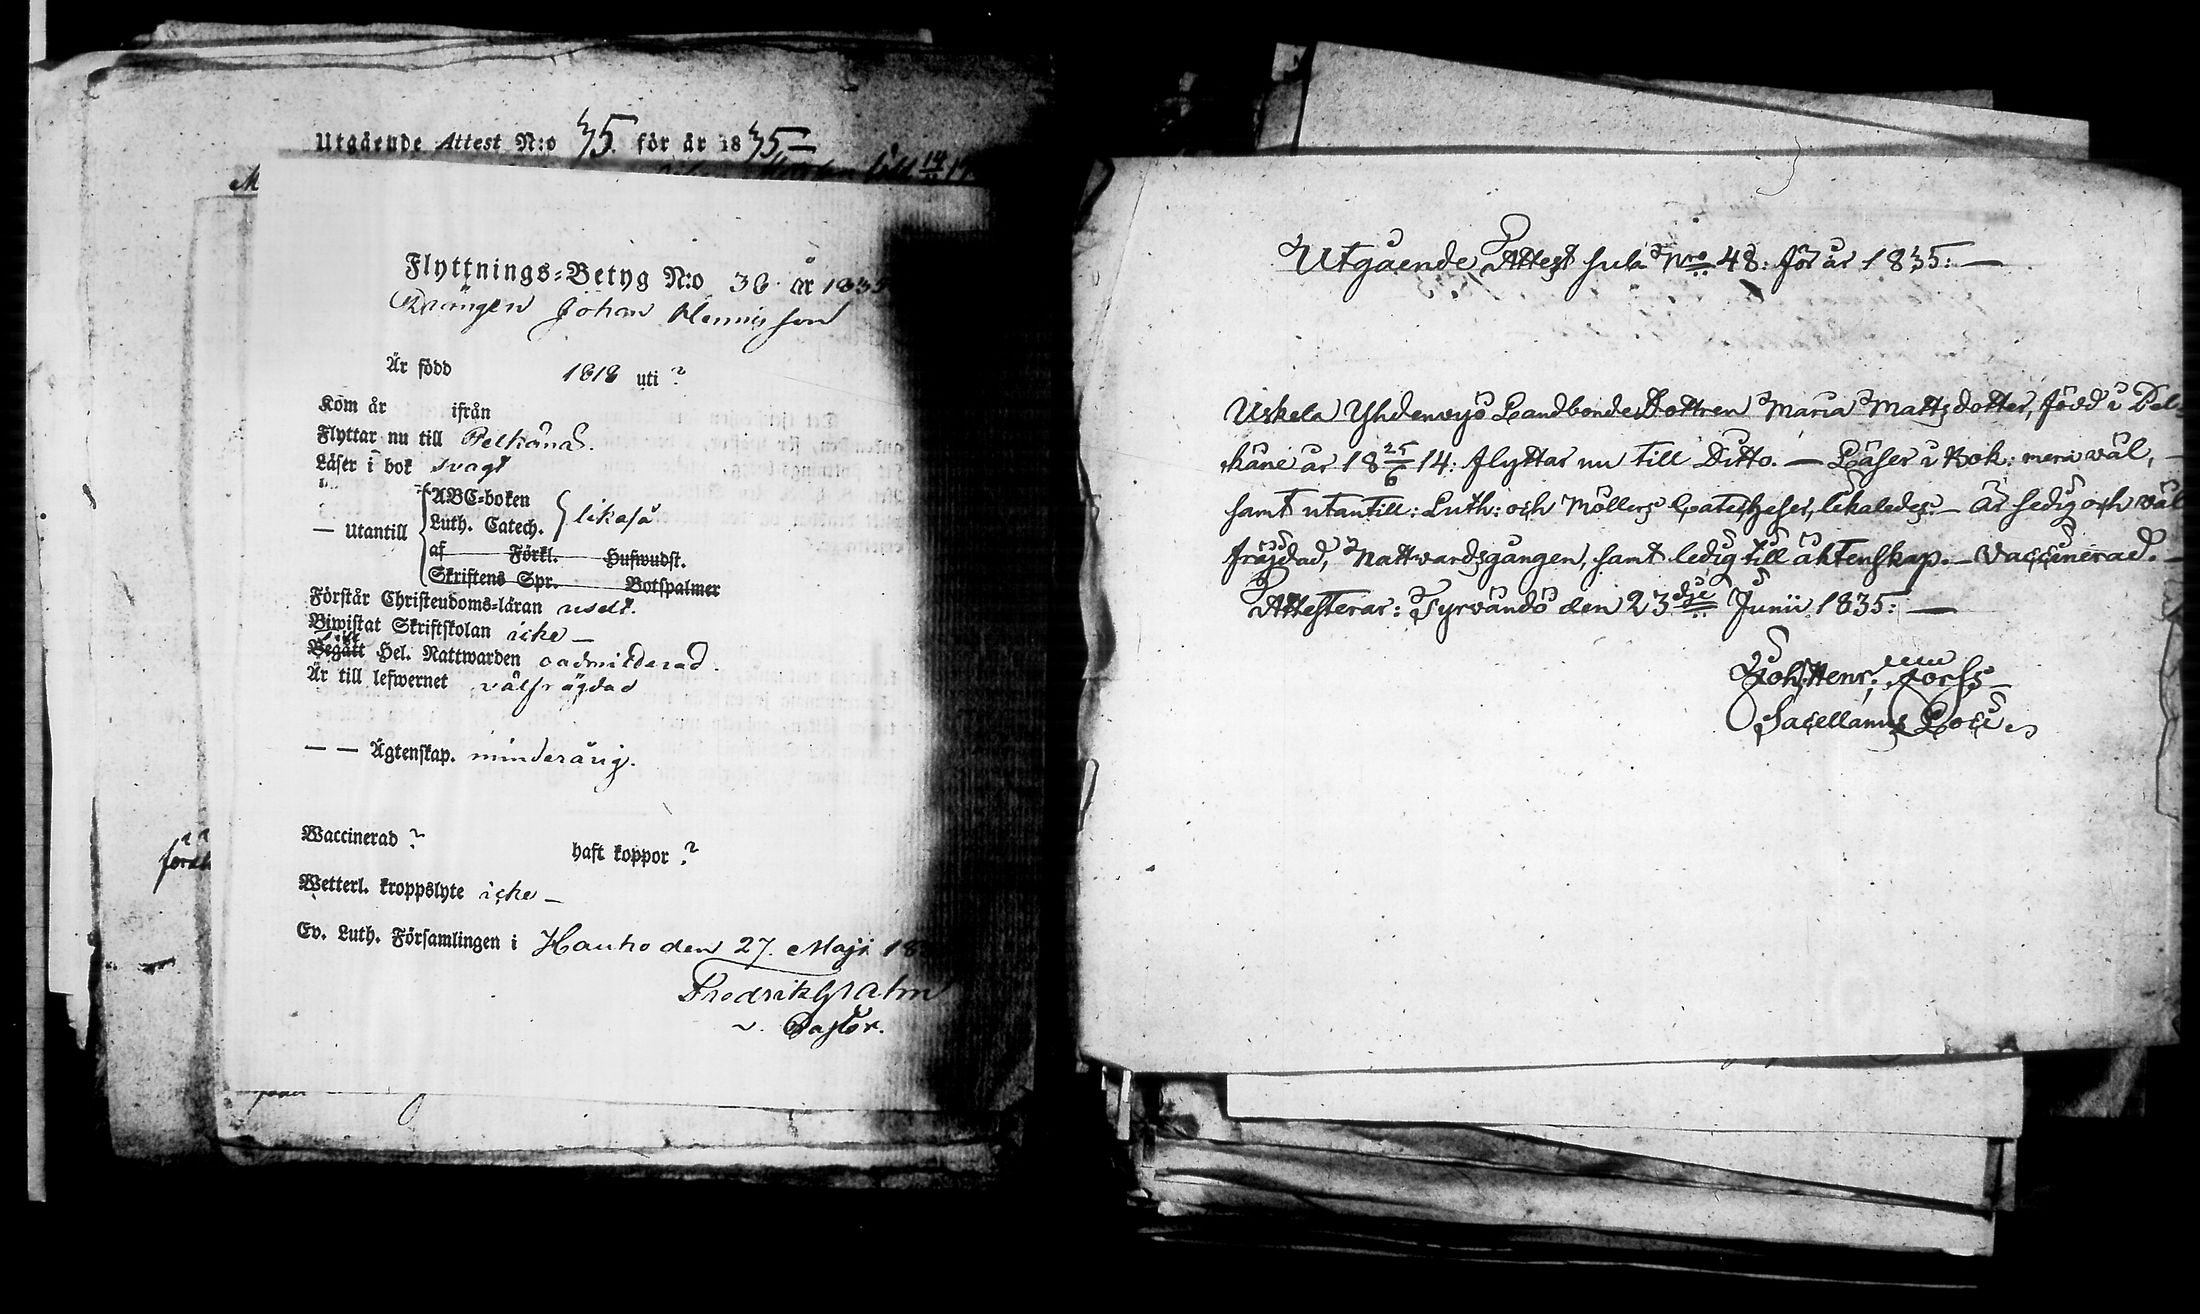 Utgående Attest N:o 35. för år 1835 —
Flyttnings-Betyg N:o 36 år 1835
Drängen Johan Hennisson
Är född 1818 uti ?
Kom år ifrån
Flyttar nu till Pelkänä.
Läser i bok svagt
— Utantill ABC-boken
Luth. Catech. likaså
af Förkl. Hufwudst.
Skriftens Spr. Botspalmer
Förstår Christendoms-läran uselt.
Biwistat Skriftskolan icke —
till
Begått Hel. Nattwarden oadmitterad.
Är till lefwernet välfrägdad
— — Ägtenskap. minderårig.
Waccinerad ? haft koppor ?
Wetterl. kroppslyte icke —
Ev. Luth. Församlingen i Hauho den 27. Maji 18
Fredrik Grahn
v. Pastor.
Utgående Attest sub Nro 48: för år 1835: —
Uskela Yhdenvyö Landbonde Dottren Maria Mattsdotter, född i Pel-
käne år 18 25/6 14: flyttar nu till Ditto. — Läser i Bok: mera väl, —
samt utantill: Luth: och Möllers Catecheser, likaledes. — Är sedig och väl
fräjdad, Nattvardsgången, samt ledig till äktenskap. — Vaccinerad. —
Attesterar: Tyrvändö den 23dje Junii 1835: —
Joh: Henr: Forss
Sacellanus Loci